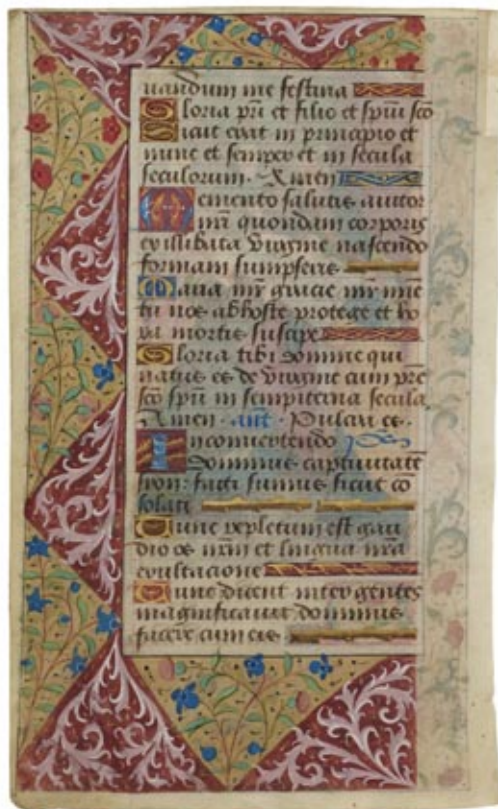 uandum me festina
Gloria pri et filio et spiui sco
Sicut erat in principio et
nunc et semper et in secula
seculorum. Amen
Memento salutis auctor
nri quondam corporis
ex illibata virgine nascendo
formam sumpseris
Maria mr gracie mr mie
tu nos abhoste protege et ho
ra mortis suscipe
Gloria tibi domine qui
natus es de virgine cum pre
sco spiu in sempiterna secula
Amen. ant. Pulcra es.
In convertendo
dominus captivitate
syon: facti sumus sicut co
solati
Tunc repletum est gau
dio os nrm et lingua nra
exultacione
Tunc dicent inter gentes
magnificavit dominus
facere cum eis